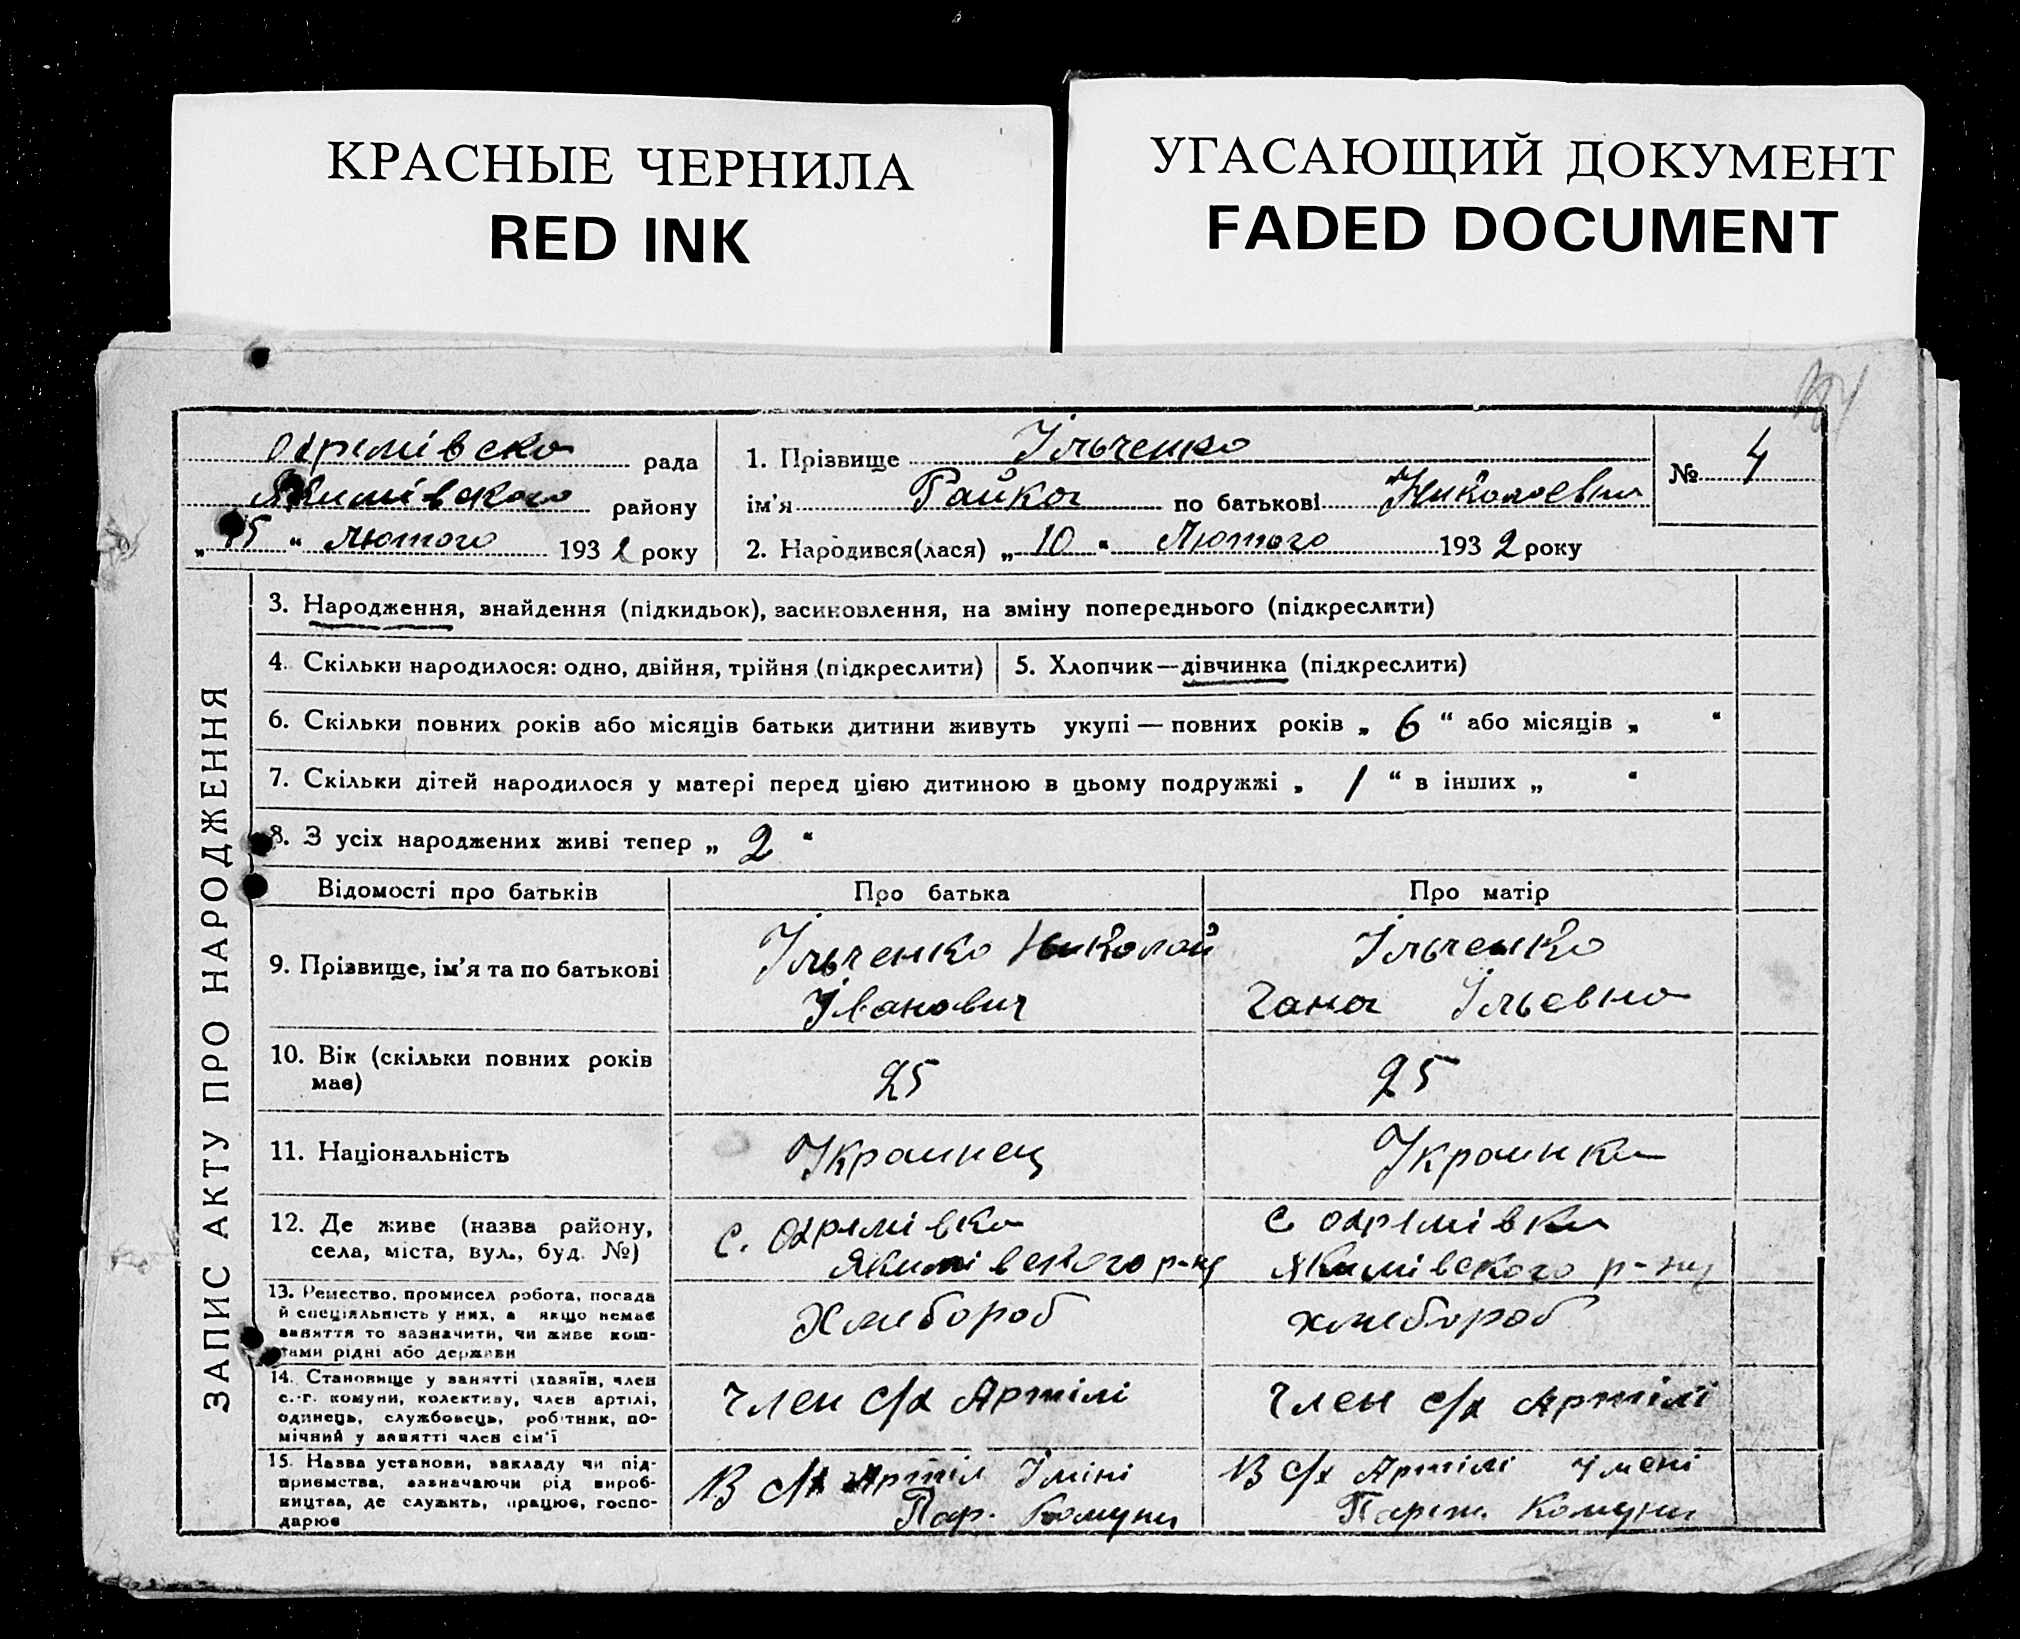 КРАСНЫЕ ЧЕРНИЛА
RED INK
УГАСАЮЩИЙ ДОКУМЕНТ
FADED DOCUMENT
Охрімівска рада
Якимівского району
„15“ Лютого 1932 року
1. Прізвище Ільченко
ім'я Райка по батькові Николаевна
2. Народився(лася) „10“ Лютого 1932 року
№ 4
ЗАПИС АКТУ ПРО НАРОДЖЕННЯ
3. Народження, знайдення (підкидьок), засиновлення, на зміну попереднього (підкреслити)
4. Скільки народилося: одно, двійня, трійня (підкреслити)
5. Хлопчик—дівчинка (підкреслити)
6. Скільки повних років або місяців батьки дитини живуть укупі — повних років „ 6 “ або місяців „ “
7. Скільки дітей народилося у матері перед цією дитиною в цьому подружжі „ 1 “ в інших „ “
8. З усіх народжених живі тепер „ 2 “
Відомості про батьків
Про батька
Про матір
9. Прізвище, ім'я та по батькові
Ільченко Николай
Іванович
Ільченко
Гана Ільевна
10. Вік (скільки повних років
має)
25
25
11. Національність
Украинец
Украинка
12. Де живе (назва району,
села, міста, вул., буд. №)
с. Охрімівка
Якимівского р-ну
с. Охрімівка
Якимівского р-ну
13. Ремество, промисел, робота, посада
й спеціяльність у них, а якщо немає
заняття то зазначити, чи живе кош-
тами рідні або держави
Хлебороб
хлебороб
14. Становище у занятті (хазяїн, член
с.-г. комуни, колективу, член артілі,
одинець, службовець, робітник, по-
мічний у занятті член сім'ї
Член с/х Артілі
Член с/х Артілі
15. Назва установи, закладу чи під-
приємства, зазначаючи рід вироб-
ництва, де служить, працює, госпо-
дарює
В с/х Артіл Іміні
Пар. Комуни
В с/х Артілі Імені
Париж. Комуни